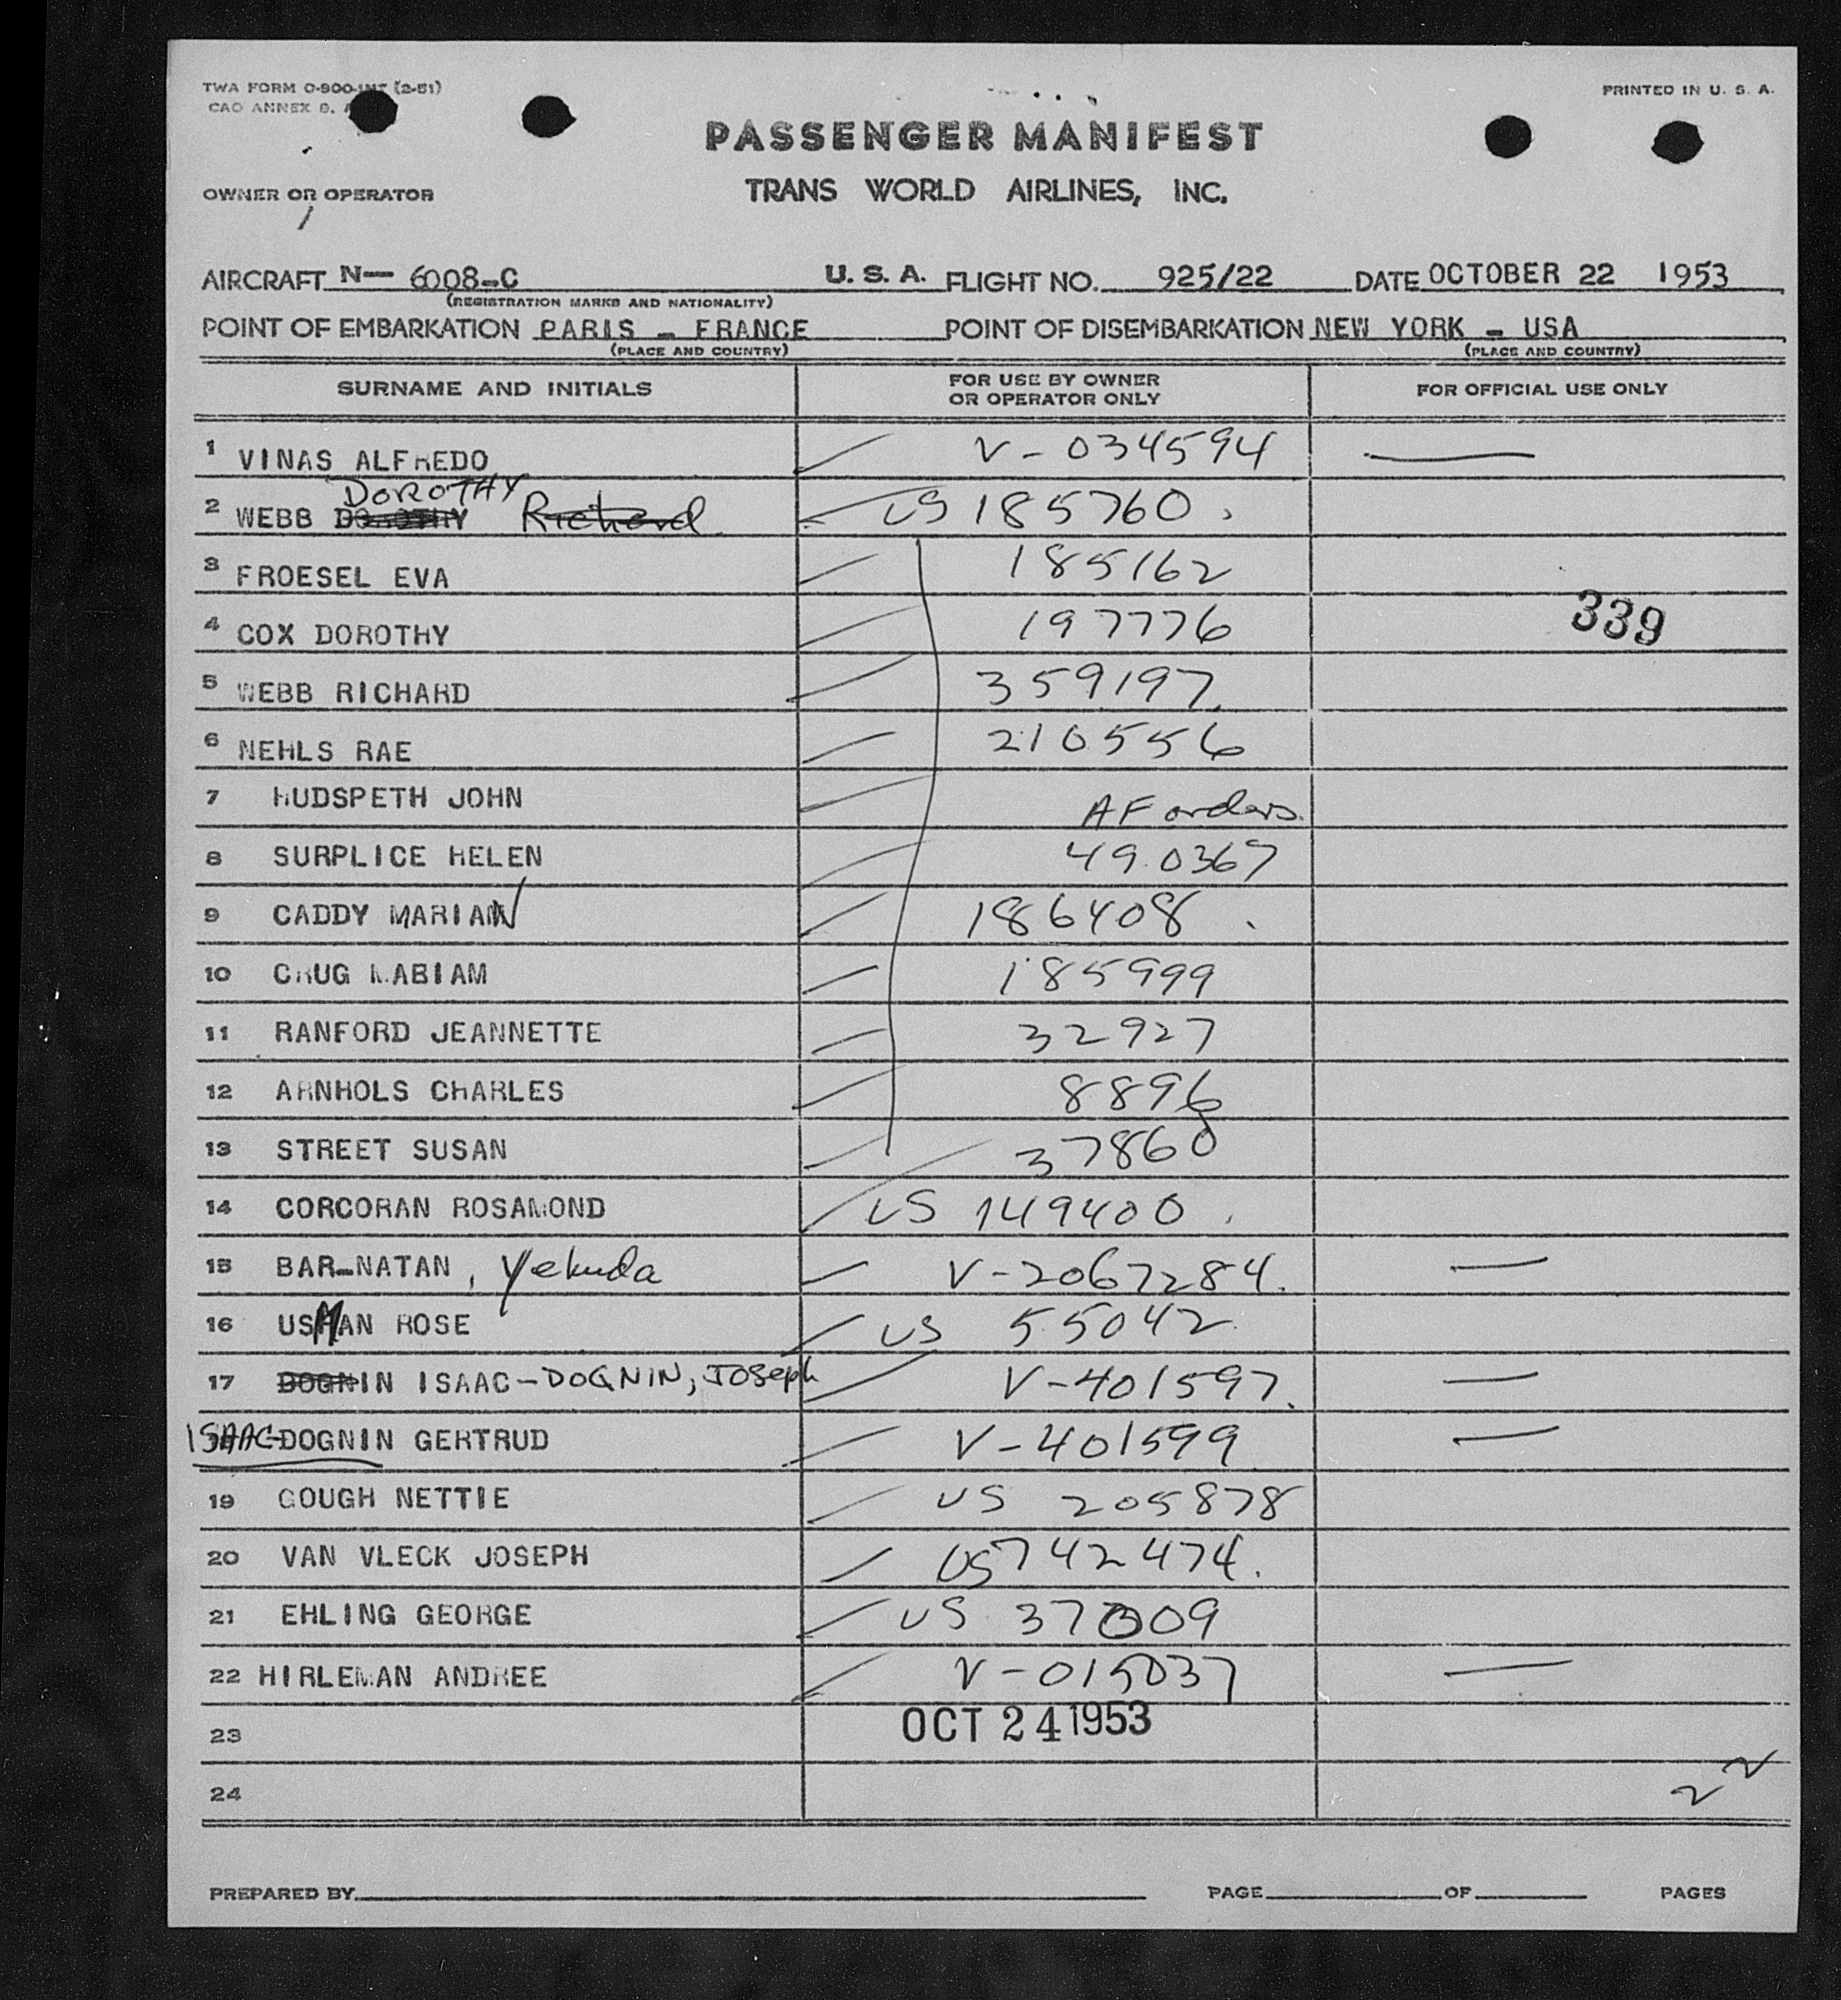 TWA FORM O-900-INT (2-51)
CAO ANNEX 9, A
PRINTED IN U. S. A.
PASSENGER MANIFEST
TRANS WORLD AIRLINES, INC.
OWNER OR OPERATOR
AIRCRAFT N— 6008-C U. S. A. FLIGHT NO. 925/22 DATE OCTOBER 22 1953
(REGISTRATION MARKS AND NATIONALITY)
POINT OF EMBARKATION PARIS - FRANCE POINT OF DISEMBARKATION NEW YORK - USA
(PLACE AND COUNTRY) (PLACE AND COUNTRY)
SURNAME AND INITIALS FOR USE BY OWNER OR OPERATOR ONLY FOR OFFICIAL USE ONLY
1 VINAS ALFREDO V-034594 —
DOROTHY
2 WEBB DOROTHY Richard US 185760.
3 FROESEL EVA 185162
4 COX DOROTHY 197776 339
5 WEBB RICHARD 359197
6 NEHLS RAE 210556
7 HUDSPETH JOHN AF orders.
8 SURPLICE HELEN 490367
9 CADDY MARIAN 186408
10 CRUG MABIAM 185999
11 RANFORD JEANNETTE 32927
12 ARNHOLS CHARLES 8896
13 STREET SUSAN 37860
14 CORCORAN ROSAMOND US 149400
15 BAR-NATAN, Yekuda V-2067284. —
16 USMAN ROSE US 55042
17 DOGNIN ISAAC-DOGNIN, Joseph V-401597. —
ISAAC-DOGNIN GERTRUD V-401599 —
19 GOUGH NETTIE US 205878
20 VAN VLECK JOSEPH US 742474.
21 EHLING GEORGE US 37309
22 HIRLEMAN ANDREE V-015037 —
23 OCT 24 1953
24 22
PREPARED BY PAGE OF PAGES